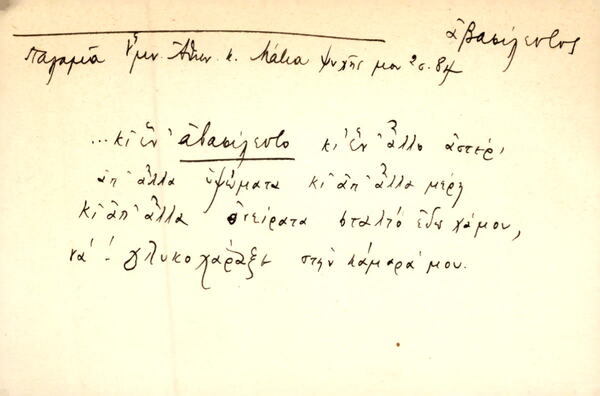 ἀβασίλευτος
Παλαμᾶ Ὕμν. Ἀθην. κ. Μάτια ψυχῆς μου 2 σ. 84
... κι ἕν' ἀβασίλευτο κι' ἕν' ἄλλο ἀστέρι
ἀπ' ἄλλα ὑψώματα κι ἀπ' ἄλλα μέρη
κι ἀπ' ἄλλα ὀνείρατα σταλτό ἐδῶ χάμου,
νά! γλυκοχάραξε στὴν κάμαρά μου.